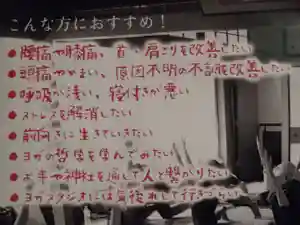 こんな方におすすめ!
● 腰痛や膝痛、首・肩こりを改善したい
● 頭痛やめまい、原因不明の不調を改善したい
● 呼吸が浅い、寝付きが悪い
● ストレスを解消したい
● 前向きに生きていきたい
● ヨガの哲学を学んでみたい
● お寺や神社を通して人と繋がりたい
● ヨガスタジオには気後れして行きづらい